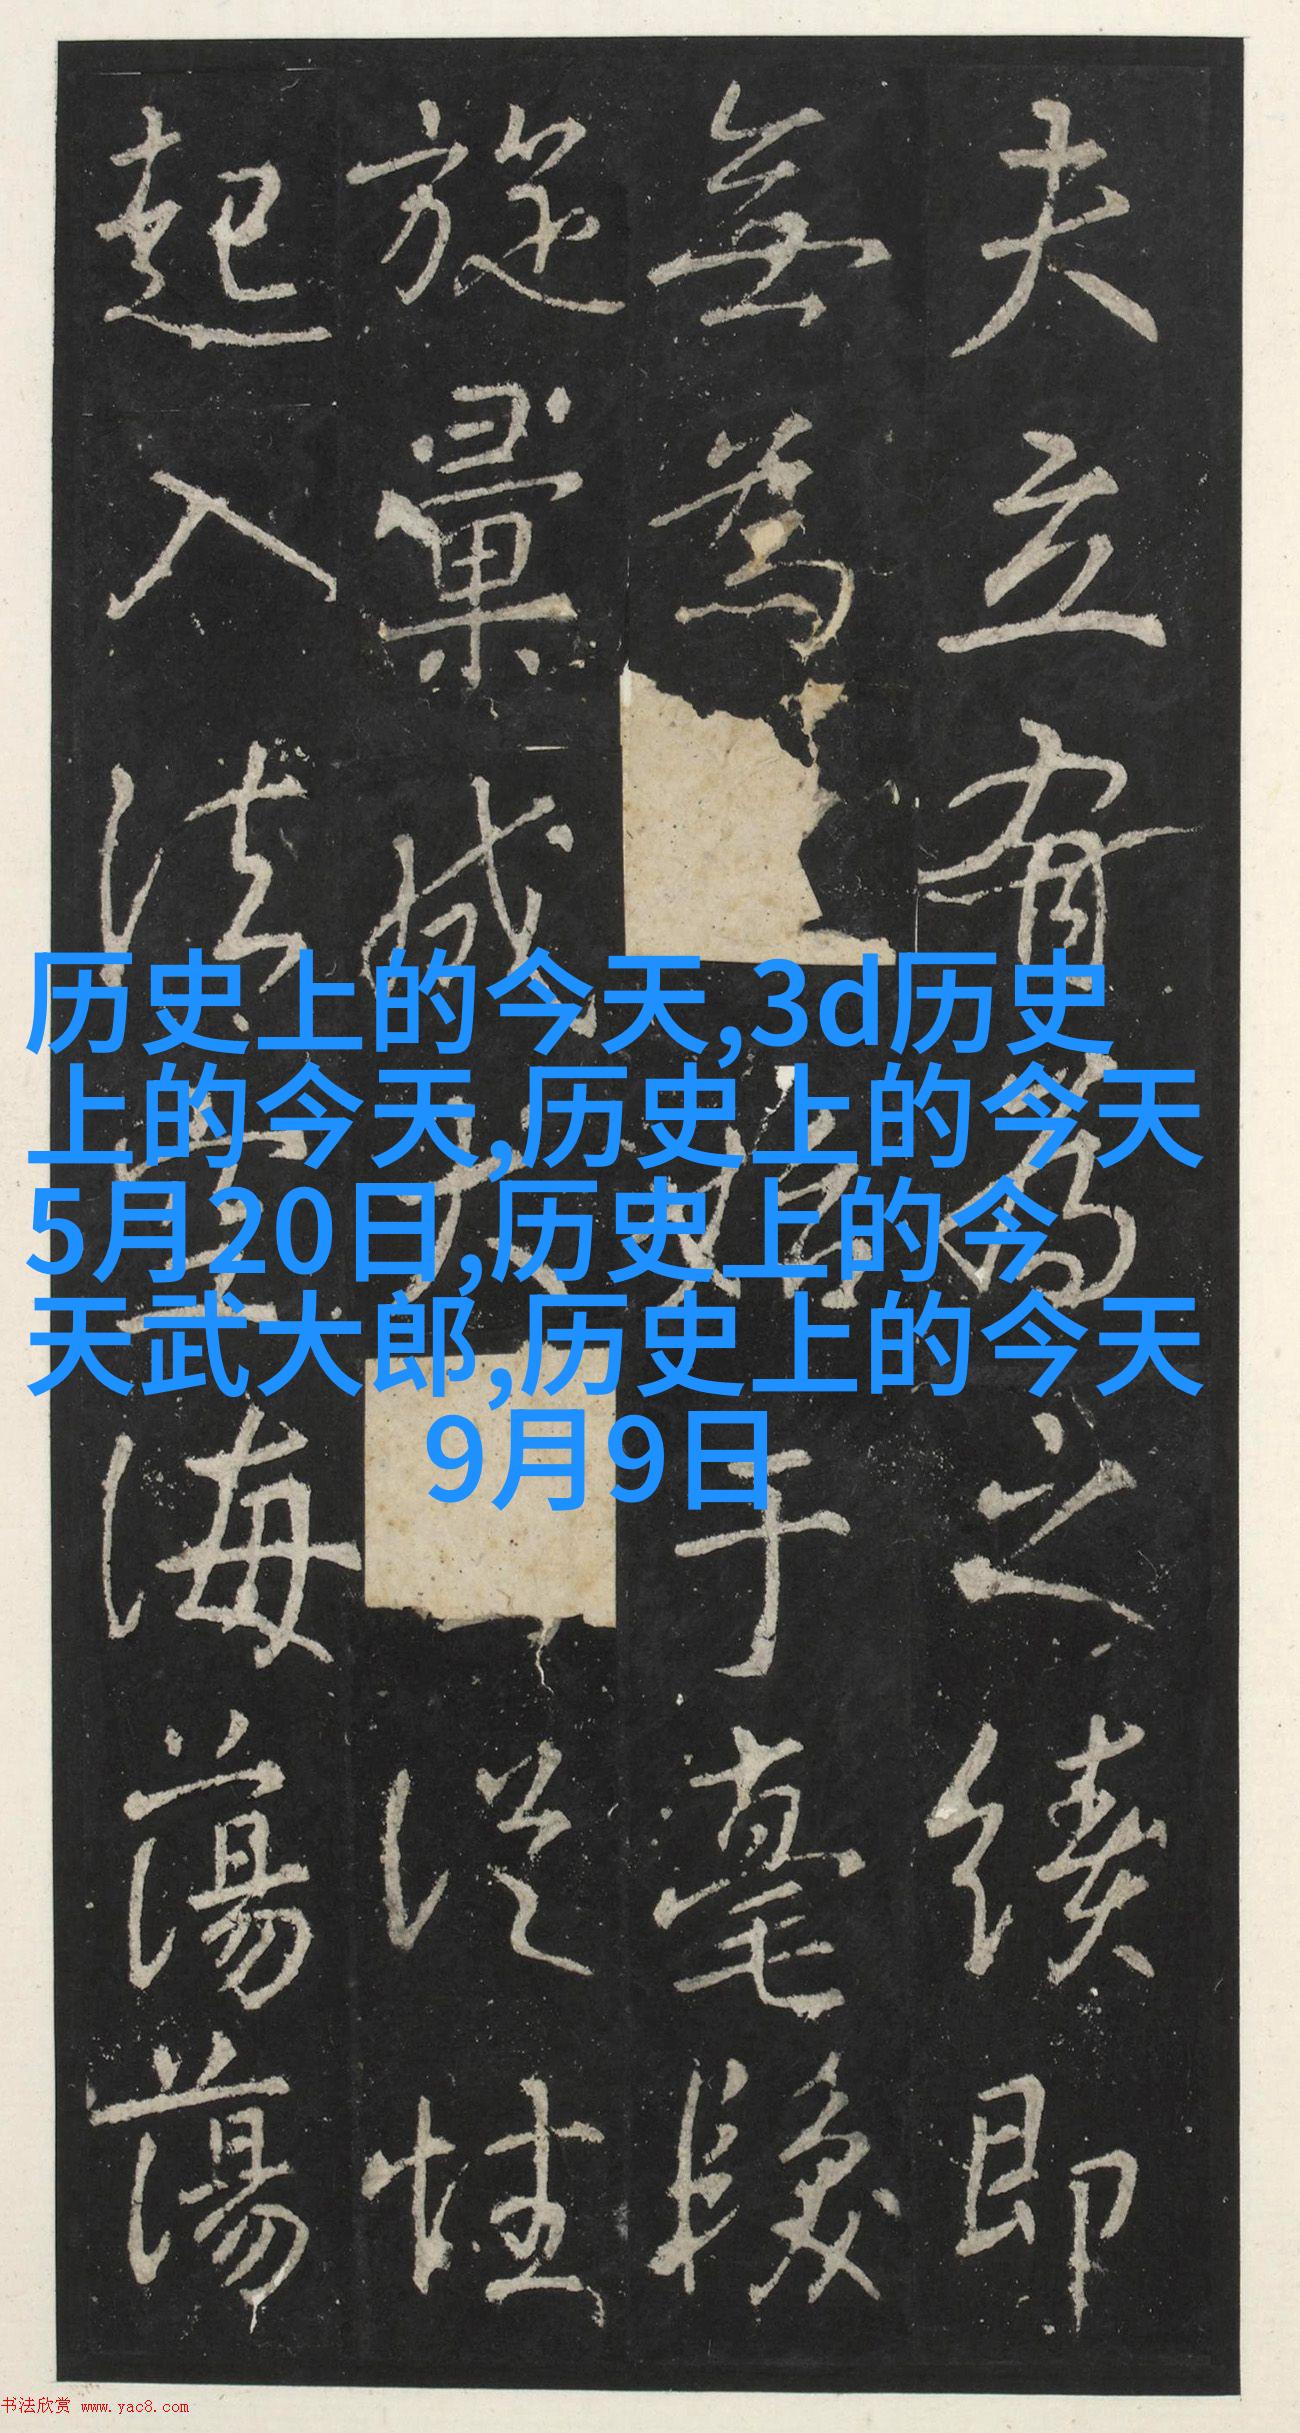 夫立有為之續即
無為
于毫釐
旋彙成
從性
起入法
海蕩蕩
历史上的今天,3d历史
上的今天,历史上的今天
5月20日,历史上的今
天武大郎,历史上的今天
9月9日
书法欣赏 www.yac8.com